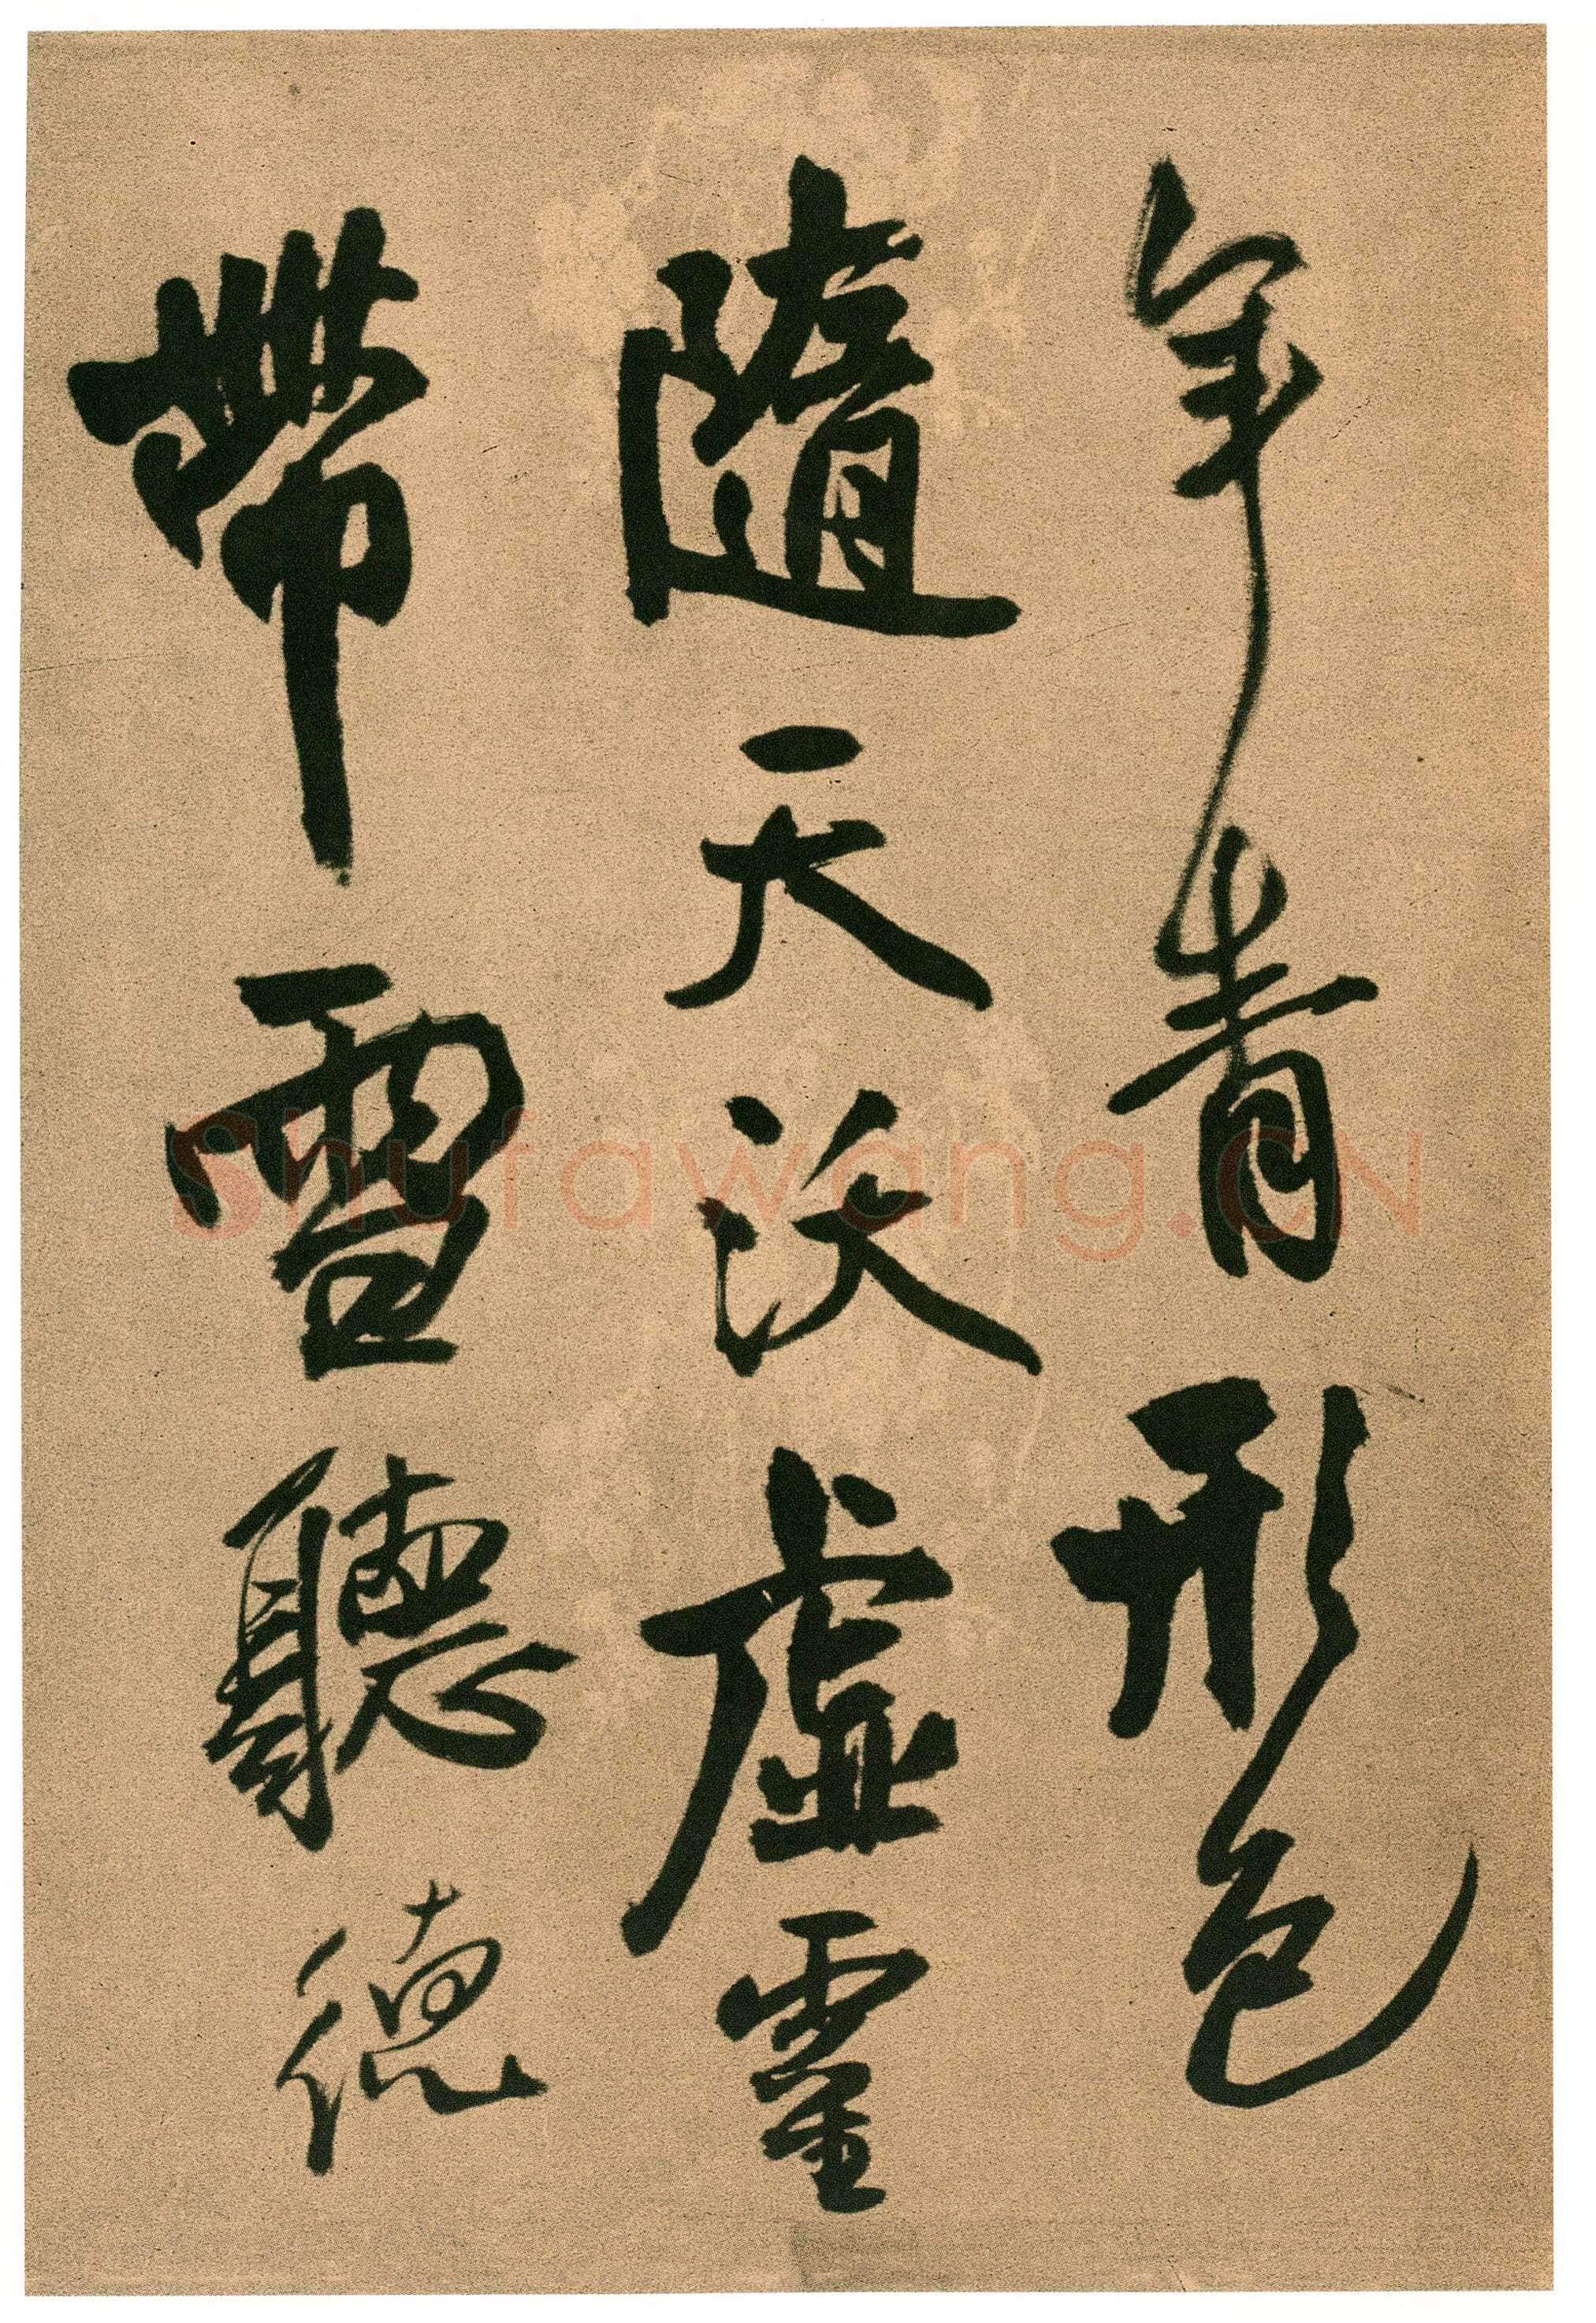 年青形色
隨天沃虛靈
帶雪聽德
shufawang.CN